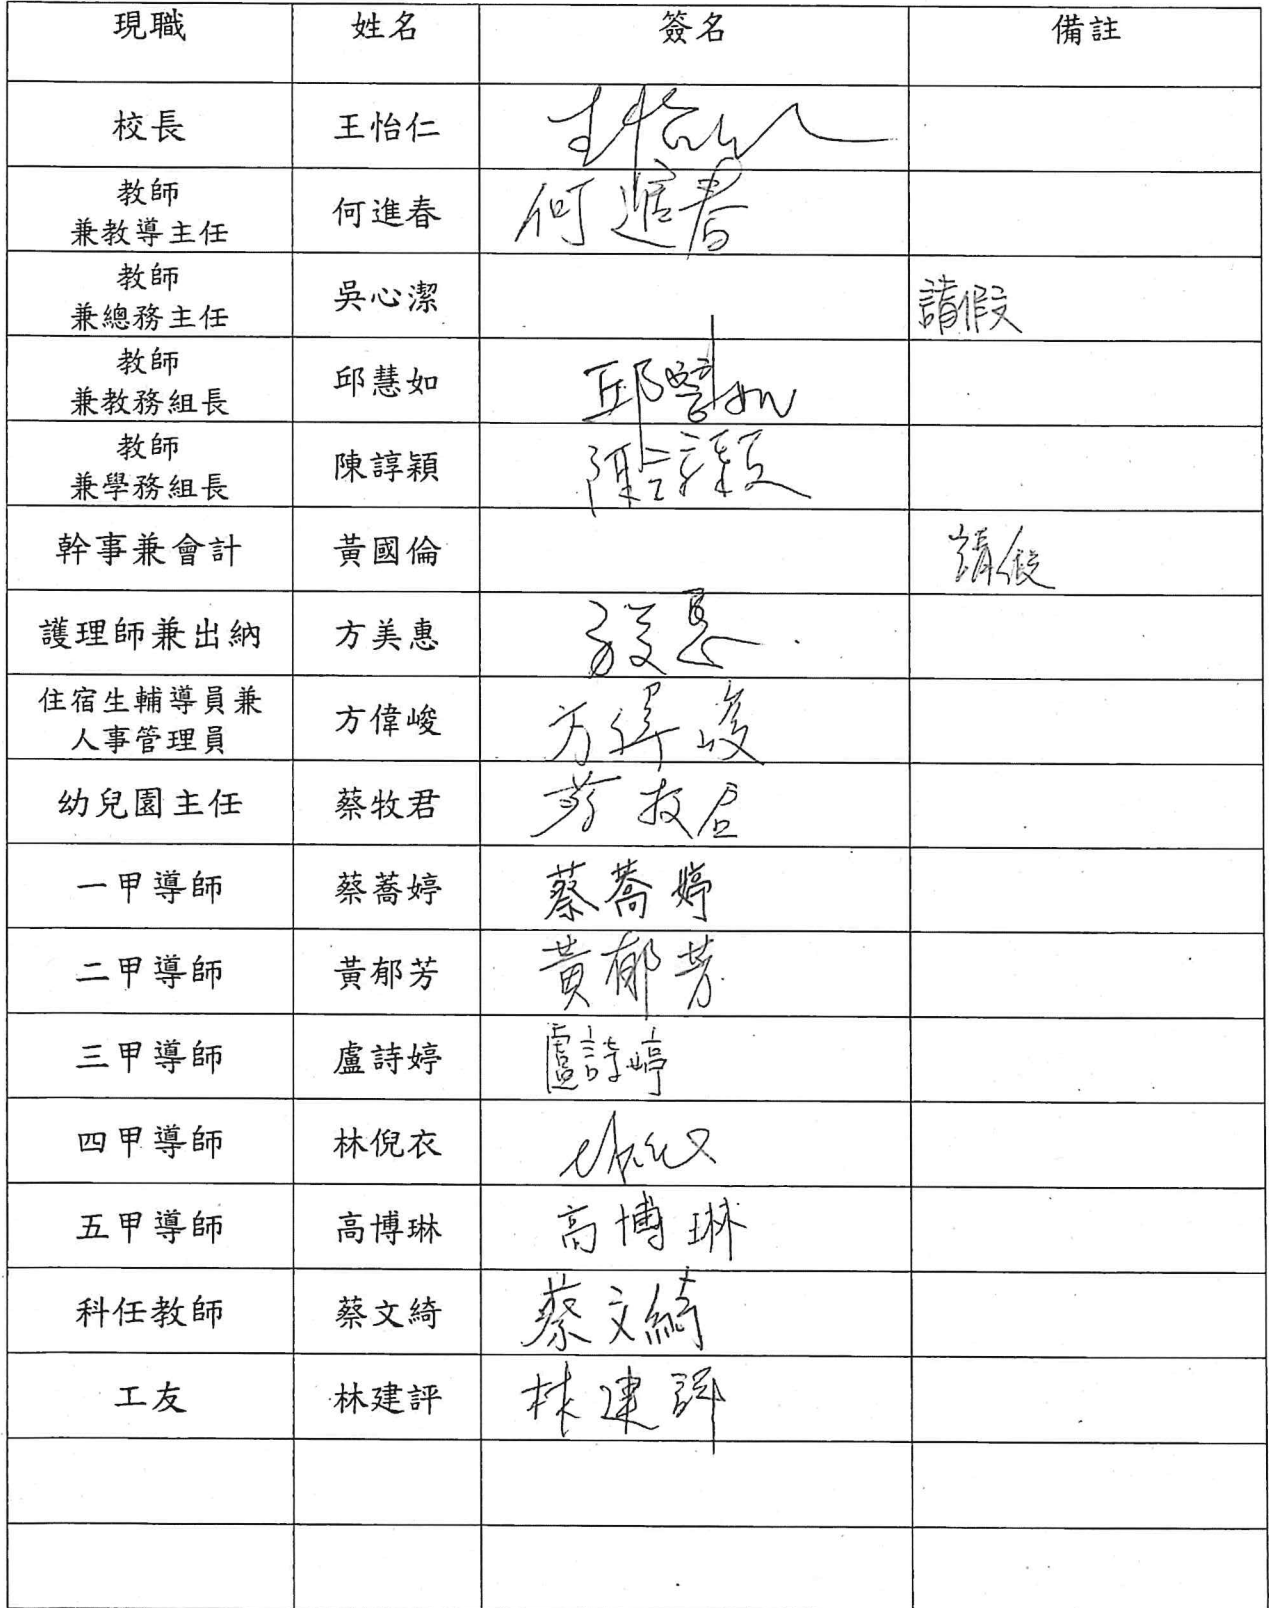 現職 姓名 簽名 備註
校長 王怡仁 王怡仁
教師
兼教導主任 何進春 何進春
教師
兼總務主任 吳心潔 請假
教師
兼教務組長 邱慧如 邱慧如
教師
兼學務組長 陳諄穎 陳諄穎
幹事兼會計 黃國倫 請假
護理師兼出納 方美惠
住宿生輔導員兼
人事管理員 方偉峻 方偉峻
幼兒園主任 蔡牧君 蔡牧君
一甲導師 蔡蕎婷 蔡蕎婷
二甲導師 黃郁芳 黃郁芳
三甲導師 盧詩婷 盧詩婷
四甲導師 林倪衣
五甲導師 高博琳 高博琳
科任教師 蔡文綺 蔡文綺
工友 林建評 林建評